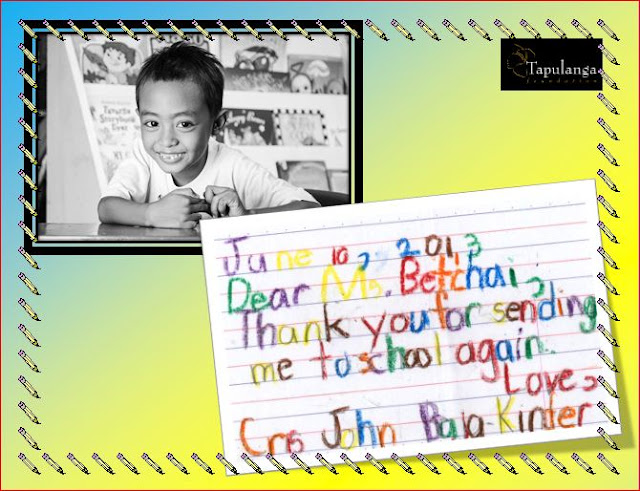 Tapulanga
foundation
June 10, 2013
Dear Ms. Betchai,
Thank you for sending
me to school again.
Love,
Cris John Bala-Kinder